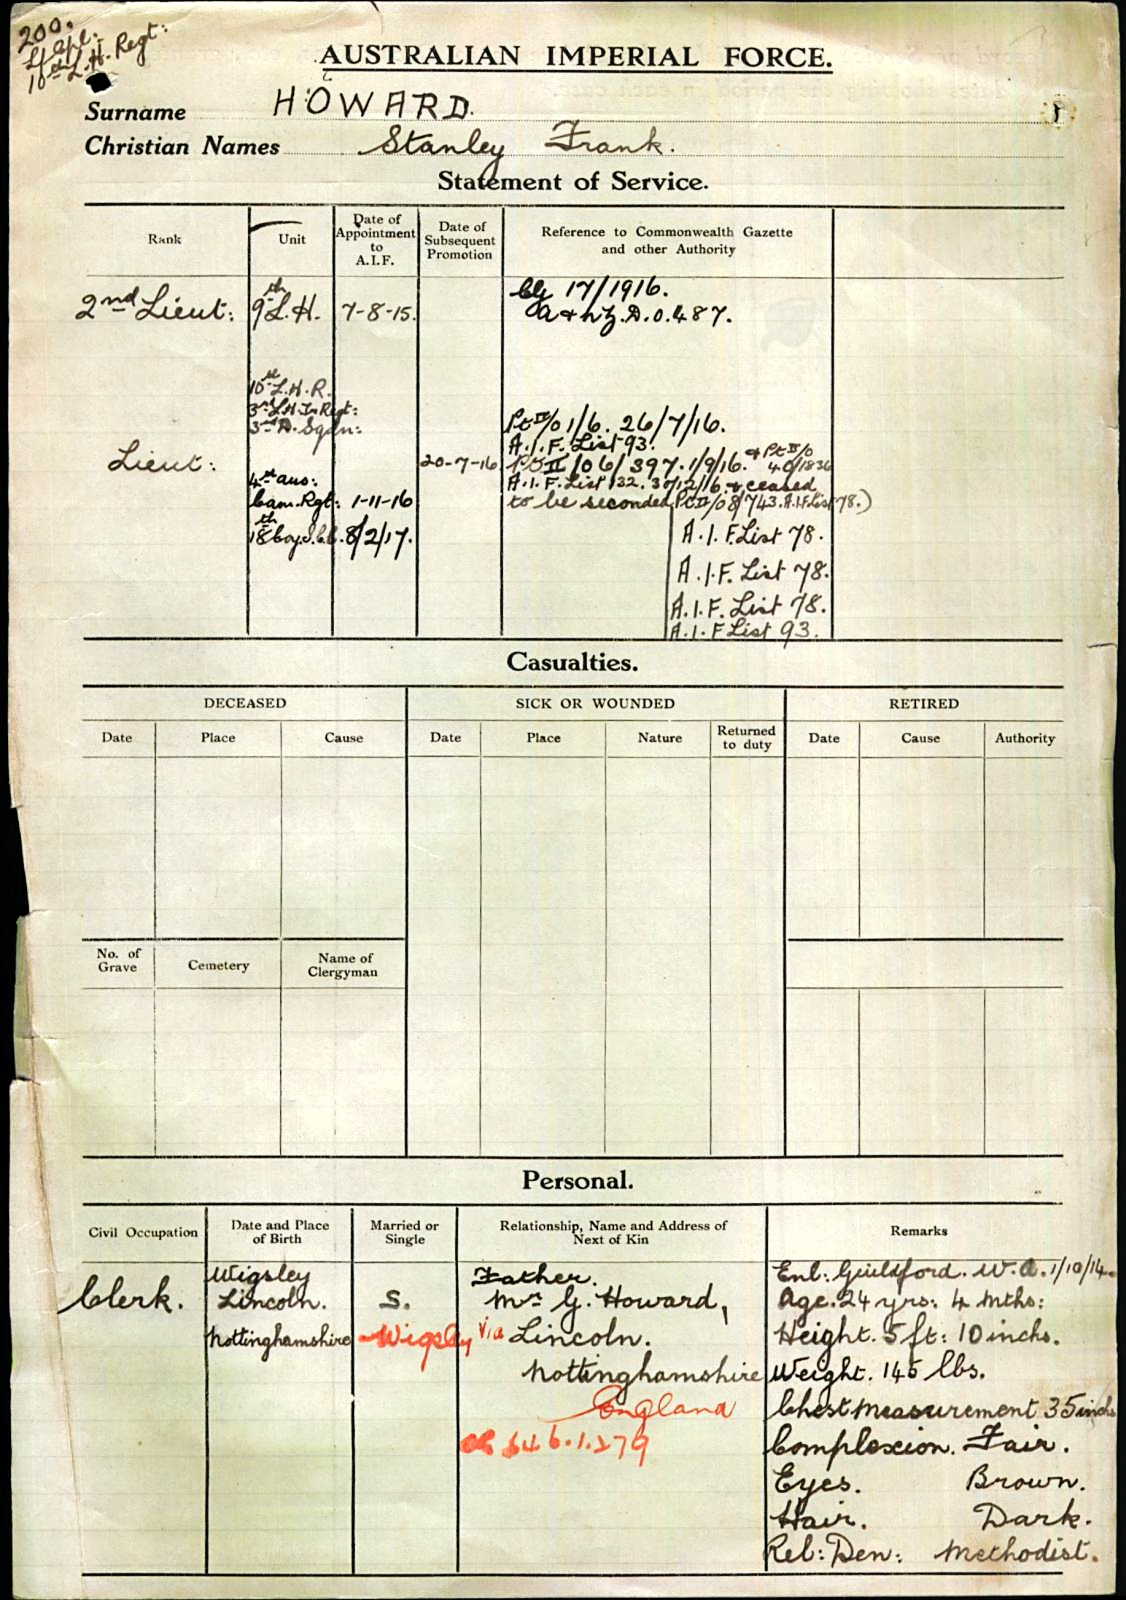 200.
L/Cpl:
10th L.H. Regt:
AUSTRALIAN IMPERIAL FORCE.
Surname HOWARD.
Christian Names Stanley Frank.
Statement of Service.
Rank Unit Date of Appointment to A.I.F. Date of Subsequent Promotion Reference to Commonwealth Gazette and other Authority
2nd Lieut: 9th L.H. 7-8-15. 17/1916.
A & N.Z. A.O. 487.
10th L.H.R.
3rd L.H. Tn Regt:
3rd A. Sqdn:
Pt II/O 1/6. 26/7/16.
A.I.F. List 93.
Lieut: 20-7-16 Pt II/O 6/397. 1/9/16. & Pt II/O 40/1836
4th Aus: A.I.F. List 132. 30/12/16. & ceased
Cam. Regt: 1-11-16 to be seconded Pt II/O 8/743. A.I.F. List 78.)
18th Coy. I.C.C. 8/2/17. A.I.F. List 78.
A.I.F. List 78.
A.I.F. List 78.
A.I.F List 93.
Casualties.
DECEASED SICK OR WOUNDED RETIRED
Date Place Cause Date Place Nature Returned to duty Date Cause Authority
No. of Grave Cemetery Name of Clergyman
Personal.
Civil Occupation Date and Place of Birth Married or Single Relationship, Name and Address of Next of Kin Remarks
Wigsley Father. Enl: Guildford. W.A. 1/10/14.
Clerk. Lincoln. S. Mr G. Howard, Age. 24 yrs: 4 mths:
Nottinghamshire Wigsley Via Lincoln. Height. 5 ft: 10 inchs.
Nottinghamshire Weight. 145 lbs.
England Chest Measurement 35 inchs
646.1.279 Complexion. Fair.
Eyes. Brown.
Hair. Dark.
Rel: Den: Methodist.